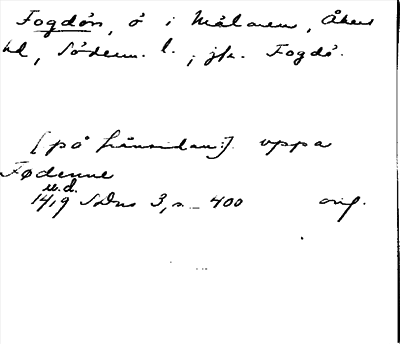 Fogdön, ö i Mälaren, Åkers
hd, Söderm. l.; jfr. Fogdö.
[på frånsidan:] uppa
Fødenne
u.d.
1419 SDns 3, s. 400 orig.